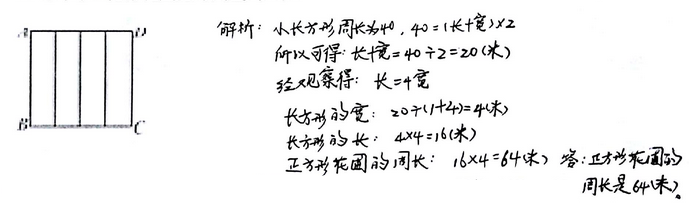 A D
B C
解析：小长方形周长为40，40=(长+宽)×2
所以可得：长+宽=40÷2=20(米)
经观察得：长=4宽
长方形的宽：20÷(1+4)=4(米)
长方形的长：4×4=16(米)
正方形花圃的周长：16×4=64(米) 答：正方形花圃的
周长是64(米)。